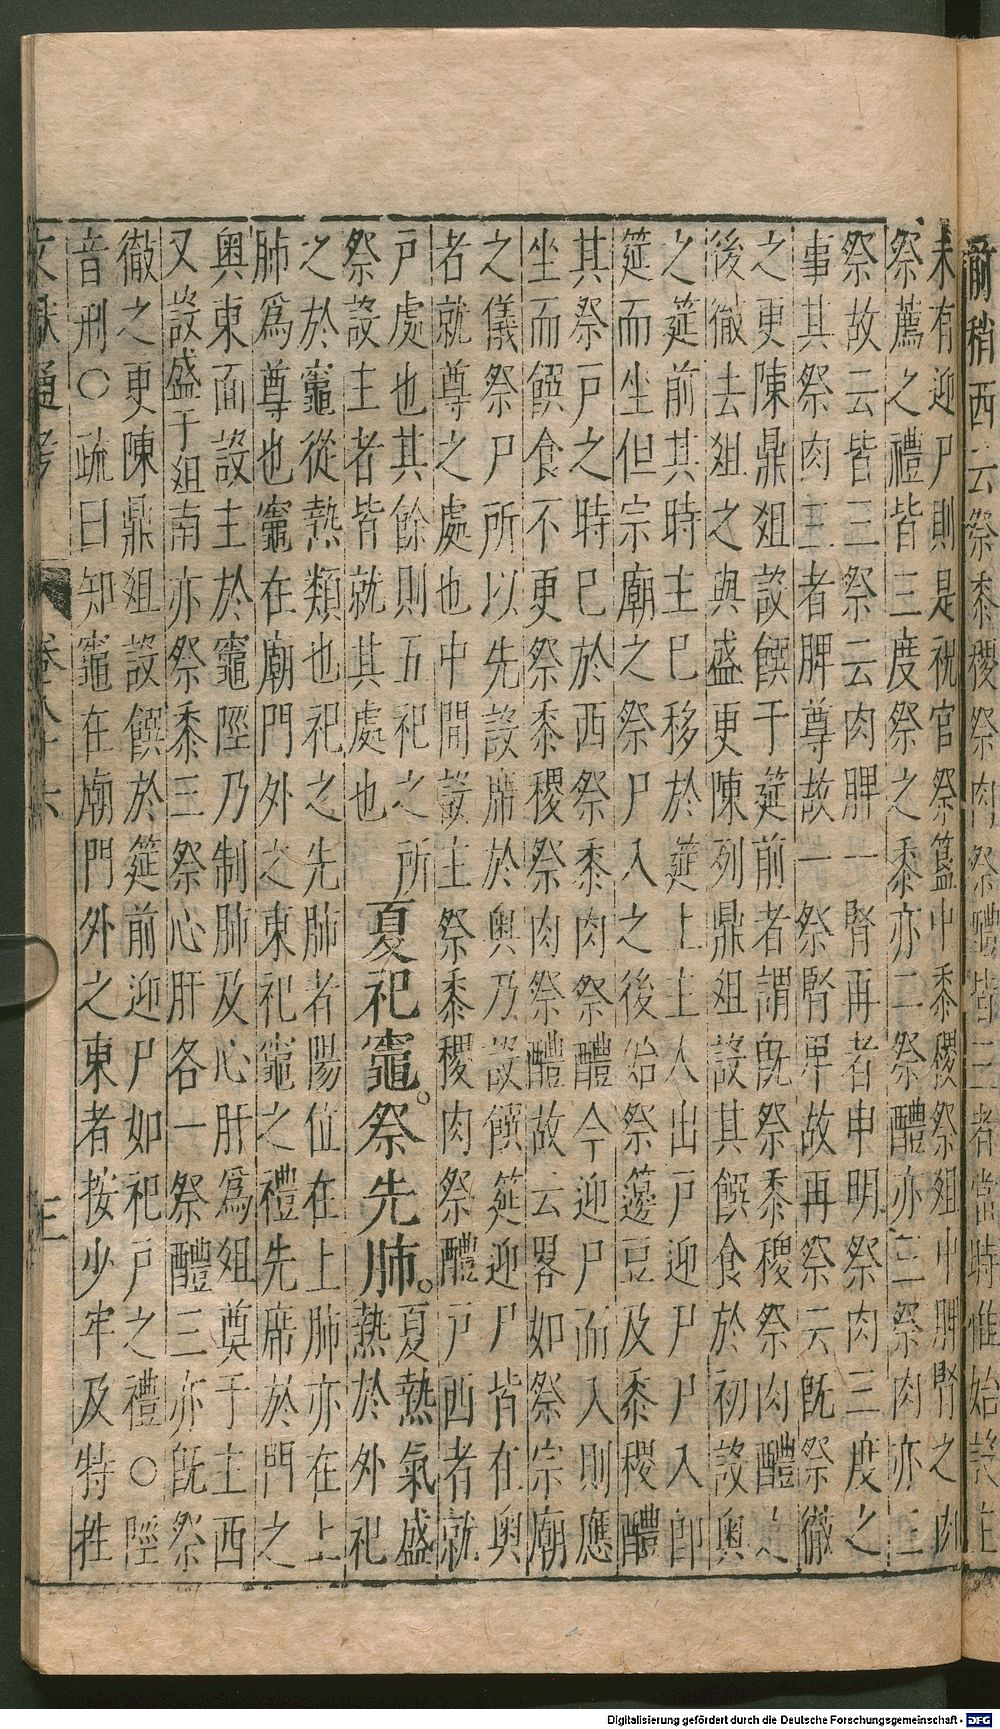 前稍西云祭黍稷祭肉祭醴皆三者當時惟始設主
未有迎尸則是祝官祭簋中黍稷祭俎中脾腎之肉
祭薦之禮皆三度祭之黍亦二祭醴亦三祭肉亦三
祭故云皆三祭云肉脾一腎再者申明祭肉三度之
事其祭肉三者脾尊故一祭腎卑故再祭云既祭徹
之更陳鼎俎設饌于筵前者謂既祭黍稷祭肉醴之
後徹去俎之與盛更陳列鼎俎設其饌食於初設奧
之筵前其時主巳移於筵上主人出戸迎尸尸入即
筵而坐但宗廟之祭尸入之後始祭籩豆及黍稷醴
其祭戸之時巳於西祭黍肉祭醴今迎尸而入則應
坐而饌食不更祭黍稷祭肉祭醴故云畧如祭宗廟
之儀祭尸所以先設席於奧乃設饌筵迎尸皆在奧
者就尊之處也中間設主祭黍稷肉祭醴戸西者就
戸處也其餘則五祀之所
祭設主者皆就其處也
夏祀竈。祭先肺。
夏熱氣盛
熱於外祀
之於竈從熱類也祀之先肺者陽位在上肺亦在上
肺爲尊也竈在廟門外之東祀竈之禮先席於門之
奧東面設主於竈陘乃制肺及心肝爲俎奠于主西
又設盛于俎南亦祭黍三祭心肝各一祭醴三亦既祭
徹之更陳鼎俎設饌於筵前迎尸如祀戸之禮○陘
音刑○疏曰知竈在廟門外之東者按少牢及特牲
文獻通考 卷八十六 三
Digitalisierung gefördert durch die Deutsche Forschungsgemeinschaft - DFG